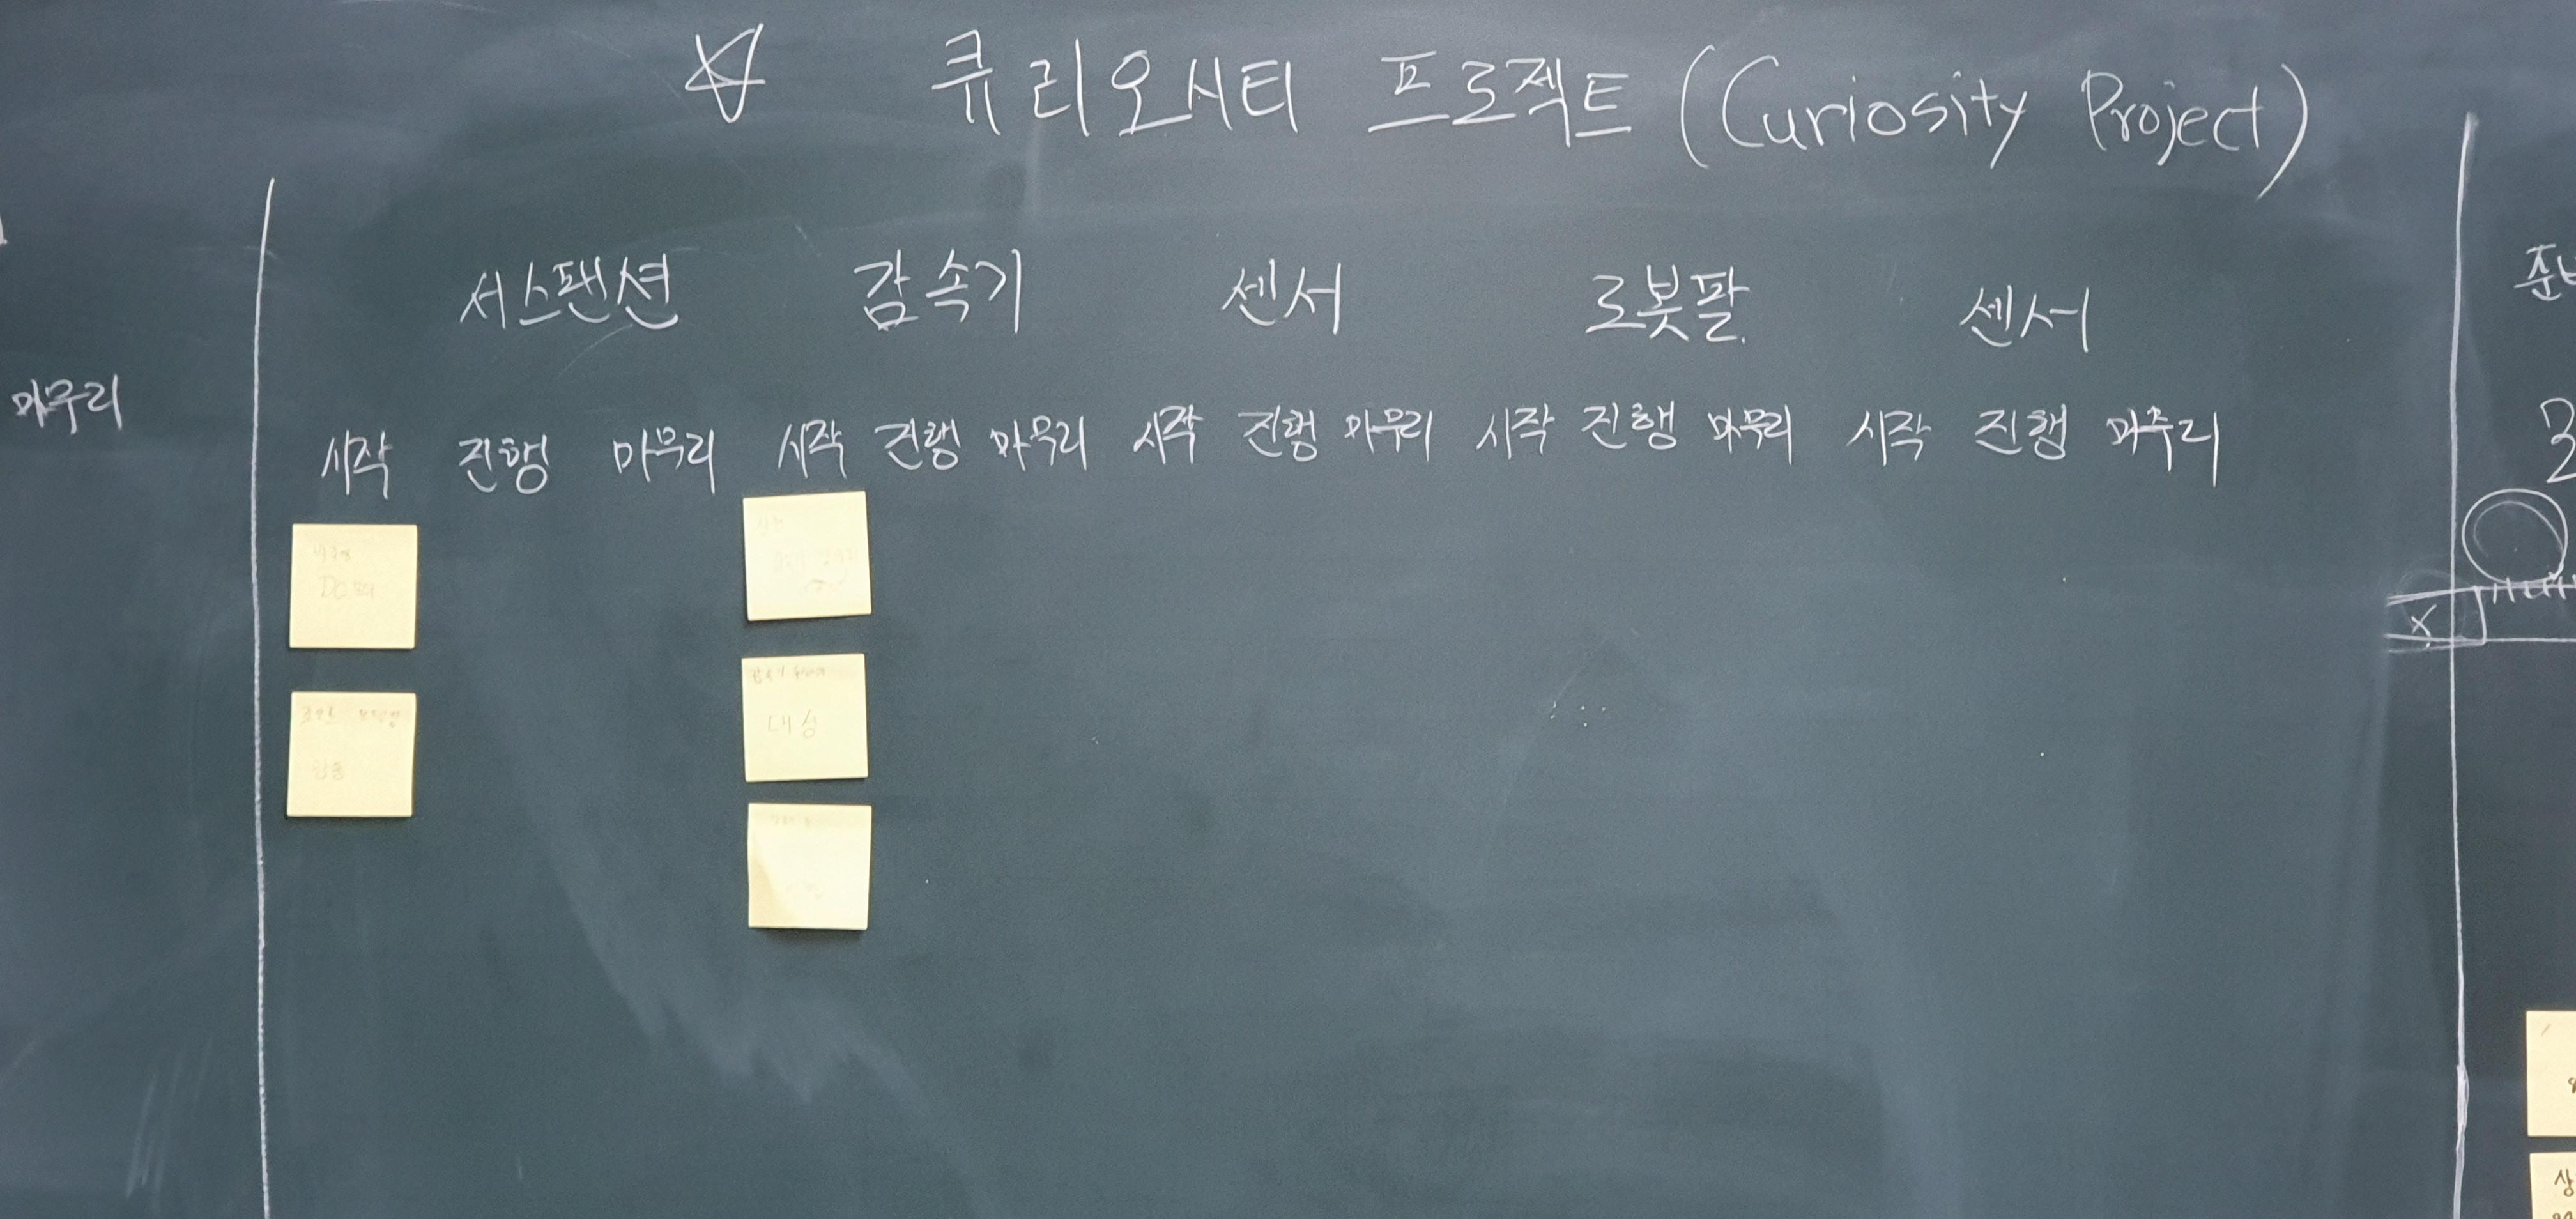 큐리오시티 프로젝트 (Curiosity Project)
서스팬션 감속기 센서 로봇팔 센서
시작 진행 마무리 시작 진행 마무리 시작 진행 마무리 시작 진행 마무리 시작 진행 마무리
마무리
DC 모터
대성
X
상